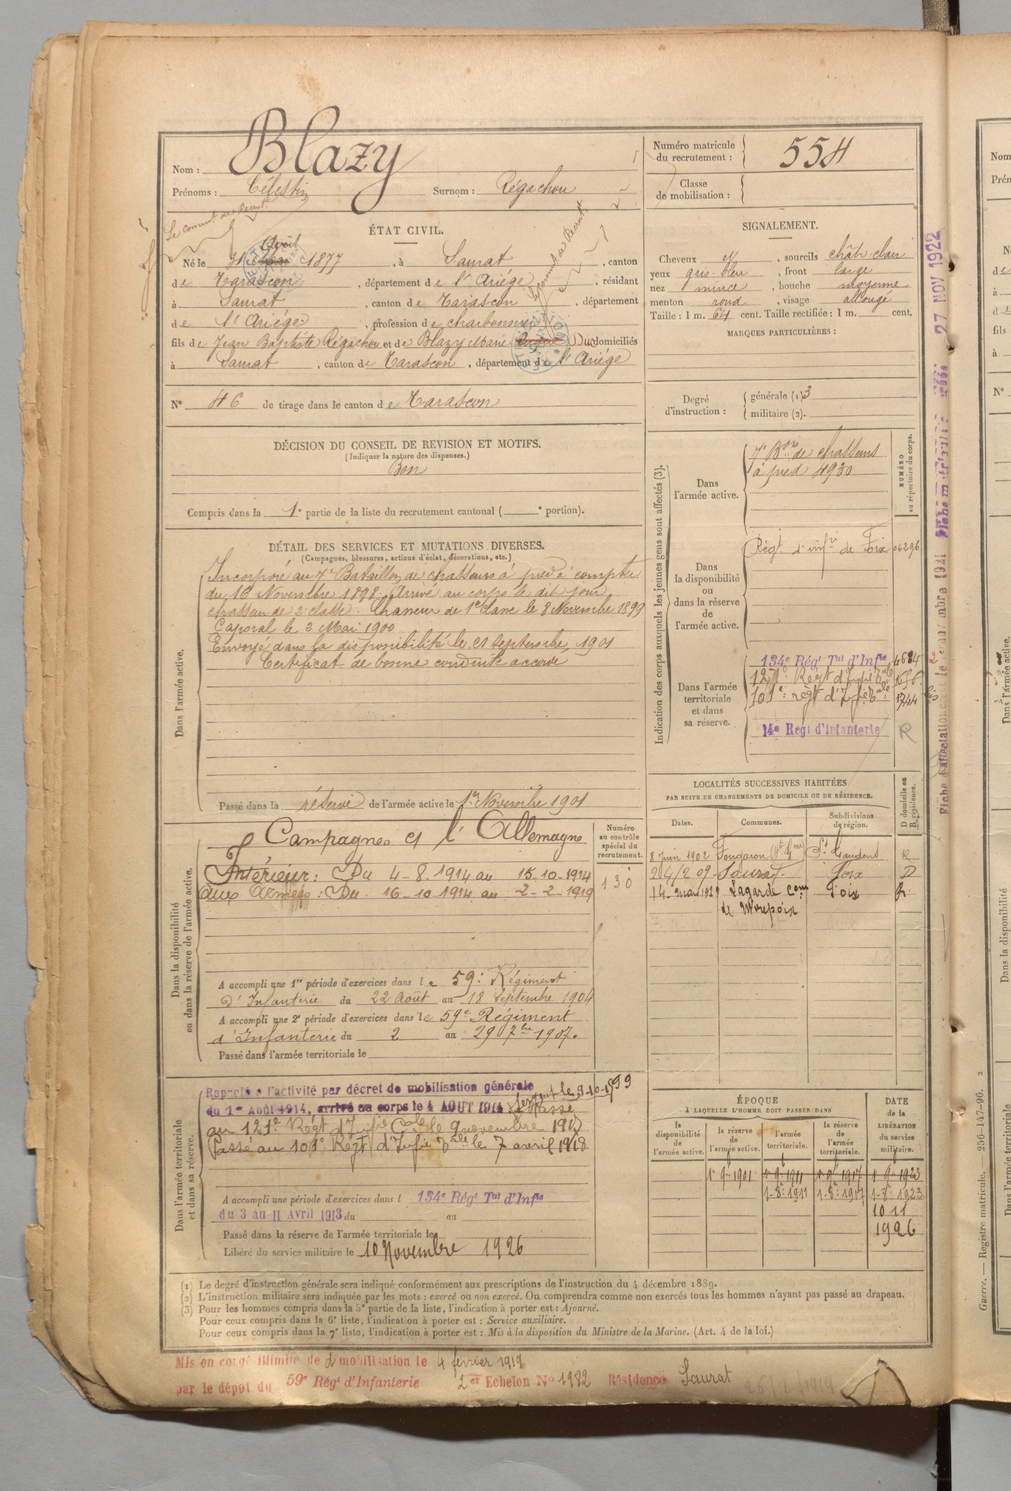 Nom : Blazy
Prénoms : Célestin Surnom : Régachou
Numéro matricule du recrutement : 554
Classe de mobilisation :
ÉTAT CIVIL.
Né le 31 Avril 1877, à Saurat, canton
de Tarascon, département de l'Ariége, résidant
à Saurat, canton de Tarascon, département
de l'Ariége, profession de charbonnier
fils de Jean Baptiste Régachou et de Blazy Marie domiciliés
à Saurat, canton de Tarascon, département de l'Ariége
N° 46 de tirage dans le canton de Tarascon
SIGNALEMENT.
Cheveux et, sourcils chât clair
yeux gris-bleu, front large
nez mince, bouche moyenne
menton rond, visage allongé
Taille : 1 m. 64 cent. Taille rectifiée : 1 m. cent.
MARQUES PARTICULIÈRES :
Degré d'instruction : générale (1) 3
militaire (2).
DÉCISION DU CONSEIL DE REVISION ET MOTIFS.
(Indiquer la nature des dispenses.)
Bon
Compris dans la 1e partie de la liste du recrutement cantonal ( e portion).
DÉTAIL DES SERVICES ET MUTATIONS DIVERSES.
(Campagnes, blessures, actions d'éclat, décorations, etc.)
Dans l'armée active.
Incorporé au 7e Bataillon de chasseurs à pied à compter
du 16 Novembre 1898. Arrivé au corps le dit jour
chasseur de 2e classe. Chasseur de 1e classe le 8 Novembre 1899
Caporal le 3 Mai 1900
Envoyé dans la disponibilité le 21 Septembre 1901
Certificat de bonne conduite accordé
Passé dans la réserve de l'armée active le 1er Novembre 1901
Indication des corps auxquels les jeunes gens sont affectés (3).
NUMÉRO au répertoire du corps.
Dans l'armée active.
7e Bon de chasseurs
à pied 4930
Dans la disponibilité ou dans la réserve de l'armée active.
Régt d'infie de Foix 06296
Dans l'armée territoriale et dans sa réserve.
134e Régt Tal d'Infie
121e Régt d'Infie
101e régt d'Infie
14e Régt d'Infanterie R
LOCALITÉS SUCCESSIVES HABITÉES
PAR SUITE DE CHANGEMENTS DE DOMICILE OU DE RÉSIDENCE.
Dates. Communes. Subdivisions de région. D domicile ou R résidence.
8 Juin 1902 Fougaron St Gaudens R
Saurat Foix D
14 mai 1921 Lagarde com Foix R
de Mirepoix
Dans la disponibilité ou dans la réserve de l'armée active.
Numéro au contrôle spécial du recrutement.
130
Campagnes c/ l'Allemagne
Intérieur : Du 4-8-1914 au 15-10-1914
Aux Armées : Du 16-10-1914 au 2-2-1919
A accompli une 1re période d'exercices dans le 59e Régiment
d'Infanterie du 22 Août au 18 Septembre 1904
A accompli une 2e période d'exercices dans le 59e Régiment
d'Infanterie du 2 au 29 7bre 1907.
Passé dans l'armée territoriale le
Dans l'armée territoriale et dans sa réserve.
Rappelé à l'activité par décret de mobilisation générale
du 1er Août 1914, arrivé au corps le 4 AOUT 1914 Passé
au 121e Régt d'Infie le 9 novembre 1917
Passé au 101e Régt d'Infie le 7 avril 1918
A accompli une période d'exercices dans l 134e Régt Tal d'Infie
du 3 au 11 Avril 1913 du au
Passé dans la réserve de l'armée territoriale le
Libéré du service militaire le 10 Novembre 1926
ÉPOQUE
À LAQUELLE L'HOMME DOIT PASSER DANS
DATE de la LIBÉRATION du service militaire.
la disponibilité de l'armée active. la réserve de l'armée active. l'armée territoriale. la réserve de l'armée territoriale.
1er 9bre 1901 1er 9bre 1911 1er 9bre 1917 1er 9bre 1923
1-8bre 1911 1-8bre 1917 1-8bre 1923
10 11
1926
(1) Le degré d'instruction générale sera indiqué conformément aux prescriptions de l'instruction du 4 décembre 1889.
(2) L'instruction militaire sera indiquée par les mots : exercé ou non exercé. On comprendra comme non exercés tous les hommes n'ayant pas passé au drapeau.
(3) Pour les hommes compris dans la 5e partie de la liste, l'indication à porter est : Ajourné.
Pour ceux compris dans la 6e liste, l'indication à porter est : Service auxiliaire.
Pour ceux compris dans la 7e liste, l'indication à porter est : Mis à la disposition du Ministre de la Marine. (Art. 4 de la loi.)
Mis en congé illimité de démobilisation le 4 février 1919
par le dépôt du 59e Régt d'Infanterie 2e Echelon No 1982 Résidence Saurat
27 NOV 1922
Guerre. — Registre matricule. — 256-147-96.